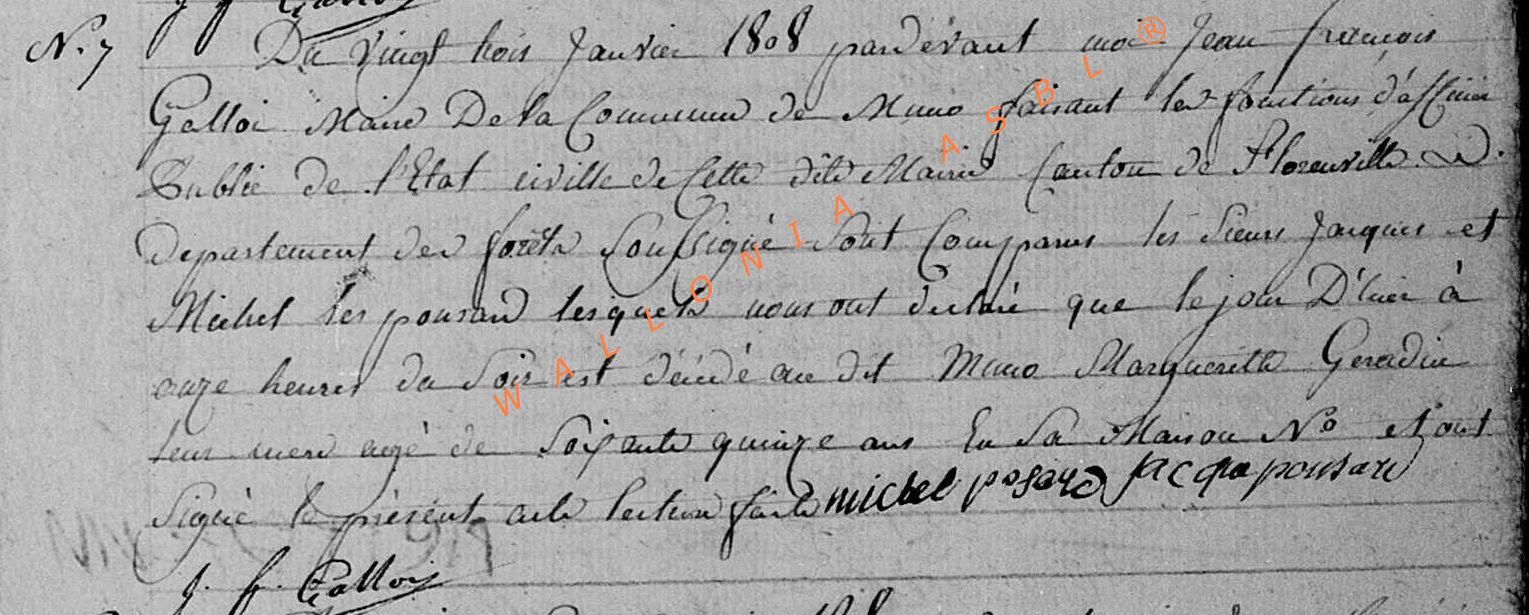 N. 7
Du vingt trois Janvier 1808 pardevant moi Jean françois
Galloi Maire De la Commune de Muno faisant les fonctions d'afficier
Public de l'Etat civille de Cette dite Mairie Canton de Florenville
departement des forêts Soussigné Sont Comparus les Sieurs Jacques et
Michel les ponsard lesquels nous ont declaré que le jour D'hier à
onze heures du Soir est décédé au dit Muno Margueritte Geradin
leur mere agé de Soixante quinze ans En Sa Maison N° et ont
Signé le présent acte lecture faite michel posard jacque ponsard
J. f. Galloi
WALLONIA ASBL ®